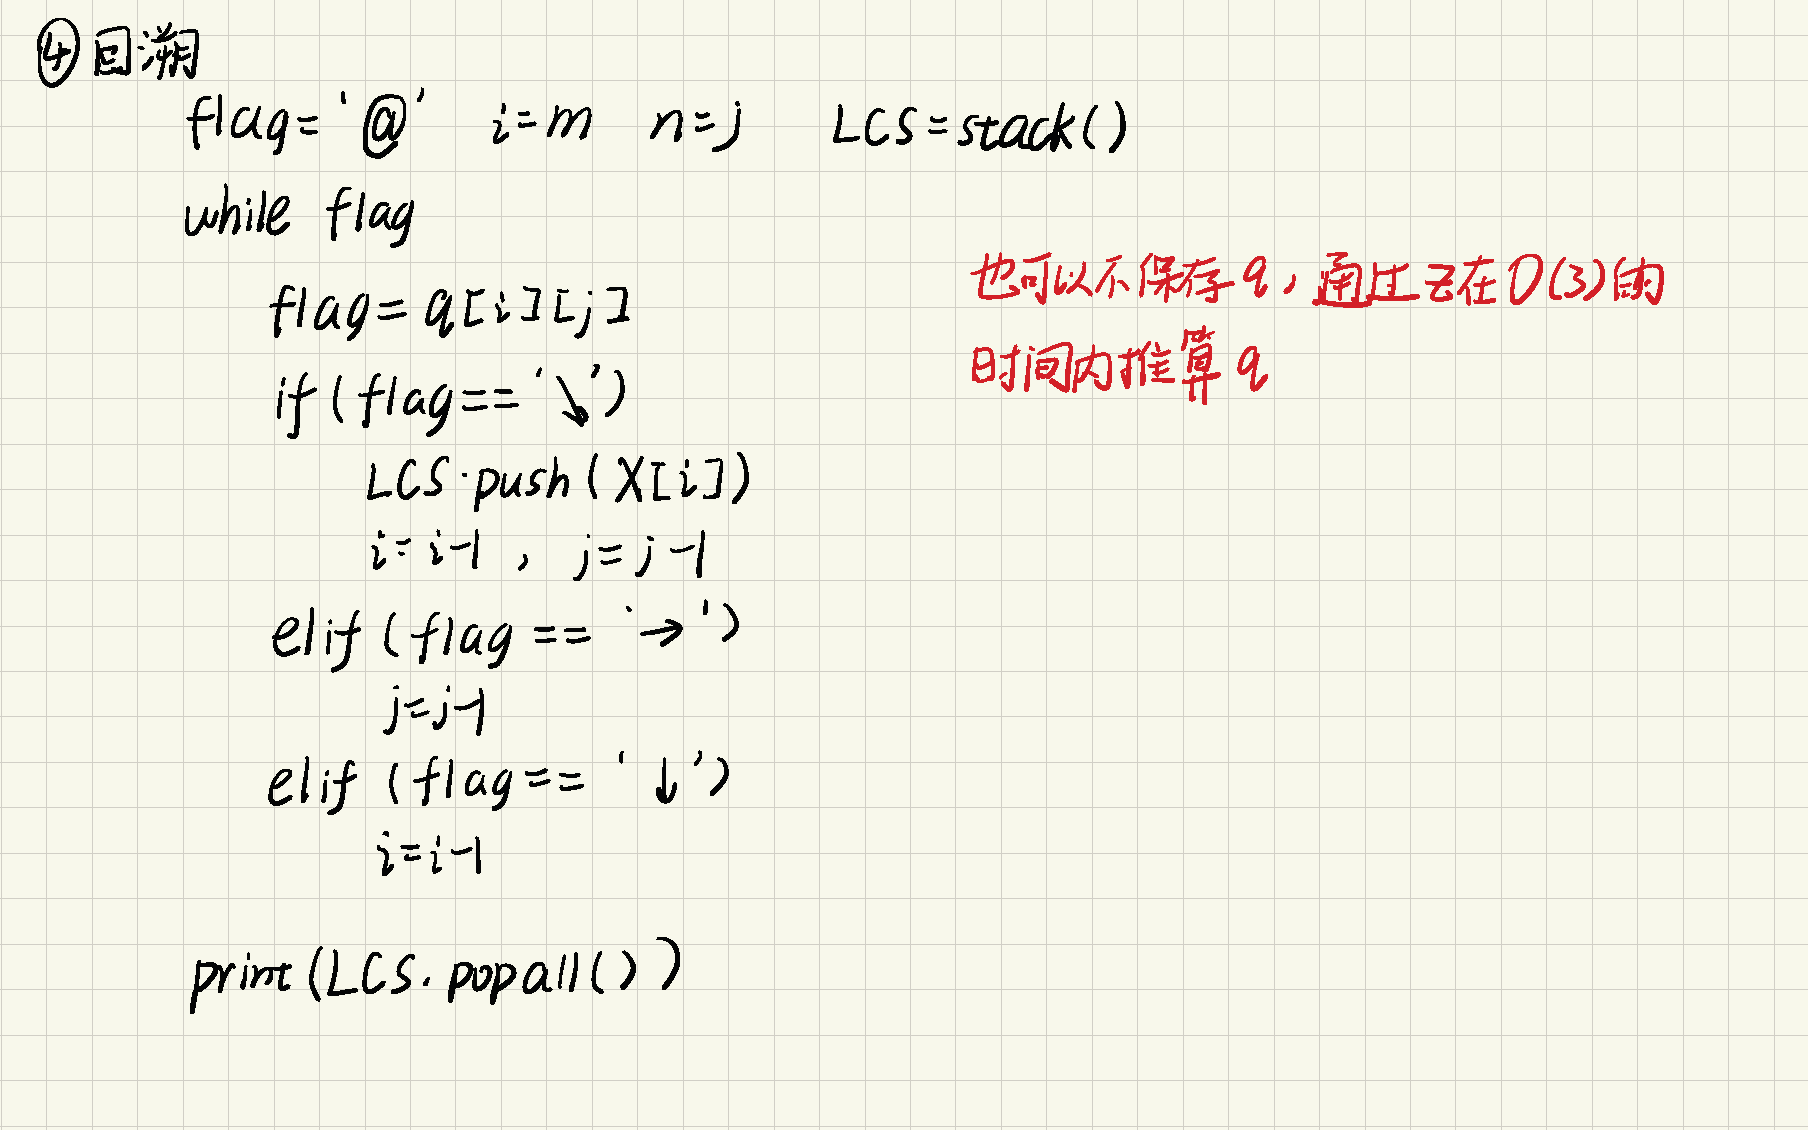 ④回溯
flag='@' i=m n=j LCS=stack()
while flag
flag=q[i][j]
if(flag=='↘')
LCS.push(X[i])
i=i-1, j=j-1
elif(flag=='→')
j=j-1
elif(flag=='↓')
i=i-1
print(LCS.popall())
也可以不保存q,通过z在O(3)的
时间内推算q